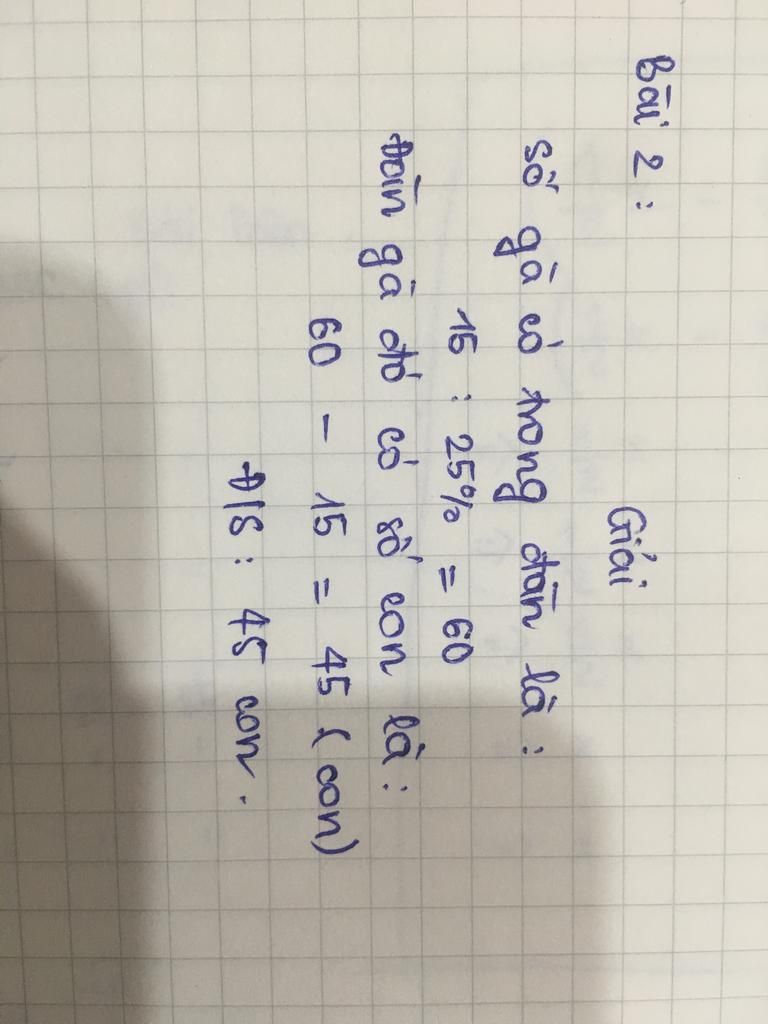 Bài 2 :
Giải
số gà có trong đàn là :
15 : 25% = 60
Đàn gà đó có số con là :
60 - 15 = 45 (con)
Đ/S : 45 con .